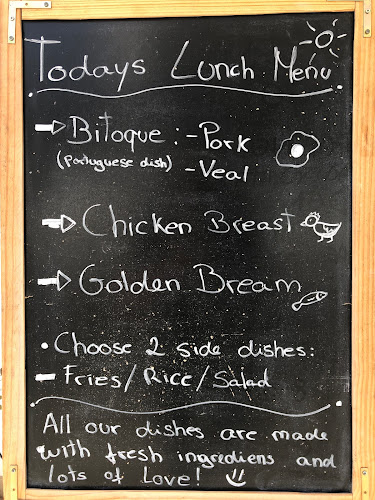 Todays Lunch Menu
Bitoque: -Pork
(Portuguese dish) -Veal
Chicken Breast
Golden Bream
• Choose 2 side dishes:
- Fries/Rice/Salad
All our dishes are made
with fresh ingrediens and
lots of Love!